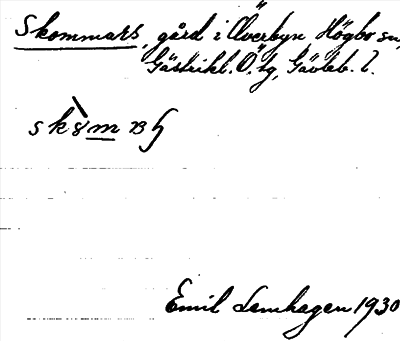 Skommars, gård i Överbyn Högbo sn,
Gästrikl. Ö. tg, Gävleb. l.
Emil Lemhagen 1930